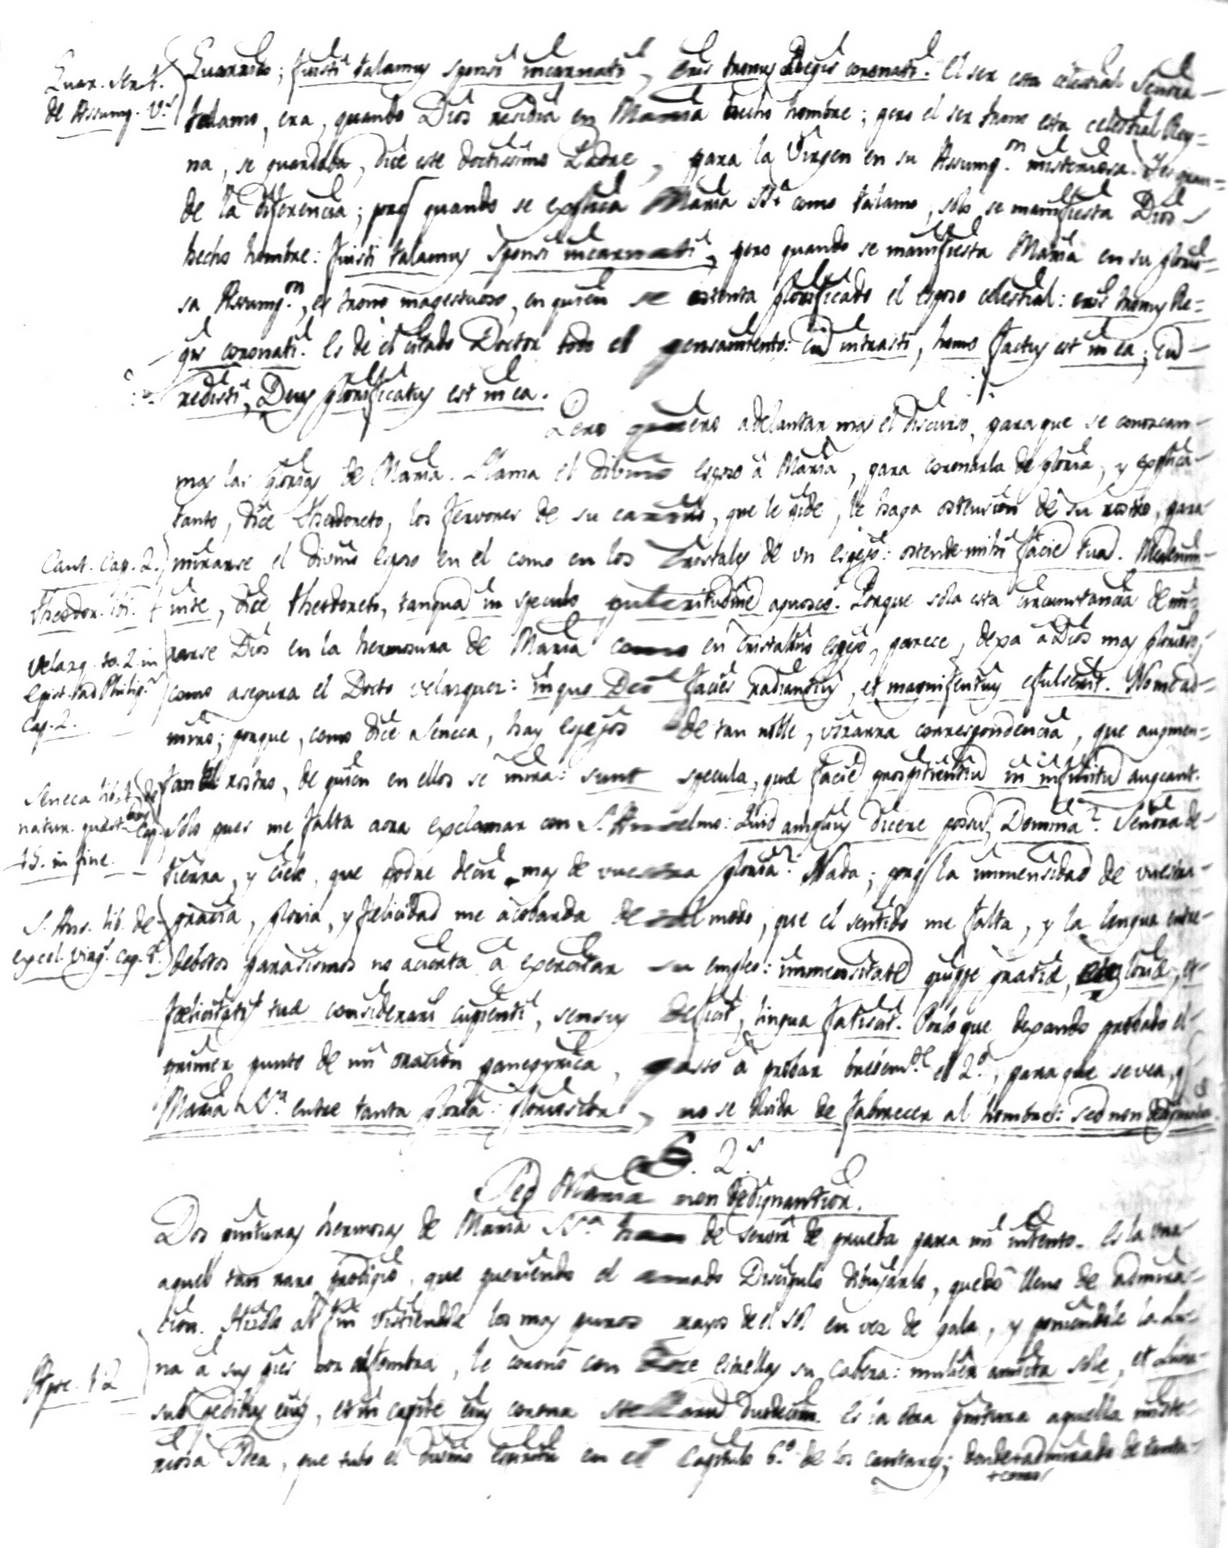 Guar. Ser. 1.
de Assump. V.s
Guarrico; fuisti talamus sponsi incarnati, eris tronus Regis coronati. El ser esta celestial Señora
talamo, era, quando Dios residia en Maria hecho hombre; pero el ser trono esta celestial Rey-
na, se guardaba, dice este doctissimo Padre, para la Virgen en su Assump.on misteriosa. Y es gran-
de la diferencia; porq quando se explica Maria SS.a como talamo, solo se manifiesta Dios
hecho hombre: fuisti talamus sponsi incarnati, pero quando se manifiesta Maria en su glorio-
sa Assump.on, es trono magestuoso, en quien se ostenta glorificado el esposo celestial: eris tronus Re-
gis coronati. Es de el citado Doctor todo el pensamiento: cũ intrasti, homo factus est in ea; cũ
redisti, Deus glorificatus est in ea.
Pero quiero adelantar mas el discurso, para que se conozcan
mas las glorias de Maria. Llama el divino esposo â Maria, para coronarla de gloria, y explica
tanto, dice Theodoreto, los fervores de su cariño, que le pide, le haga ostension de su rostro, para
Cant. Cap. 2.
mirarse el divino esposo en el como en los cristales de un espejo: ostende mihi faciẽ tuã.
Theodor. ibi.
inte, dice theodoreto, tanquã in speculo pulcritudinẽ agnosco. Porque sola esta circunstancia de mi-
Velazq. to. 2. in
epist. ad Philip.
Cap. 2.
rarse Dios en la hermosura de Maria como en cristalino espejo, parece, dexa â Dios mas glorioso,
como asegura el Docto Velazquez: in quo Dei facies radiantius, et magnificentius effulserit. No me ad-
miro; porque, como dice Seneca, hay espejos de tan noble, y tan rara correspondencia, que augmen-
tan el rostro, de quien en ellos se mira: sunt specula, que faciẽ prospicientiũ in infinitũ augeant.
Seneca lib. 1.
natur. quest. Cap.
15. in fine.
Solo pues me falta aora exclamar con S. Anselmo: Quid amplius dicere possũ, Domina? Señora de
tierra, y cielo, que podre decir mas de vuestra gloria? Nada; porq la immensidad de vuestra
S. Ans. lib. de
excel. Virg. Cap. 8.
gracia, gloria, y felicidad me acobarda de tal modo, que el sentido me falta, y la lengua entre
debotos parasismos no acierta â exercitar su empleo: immensitatẽ quippe gratiæ, et gloriæ, et
felicitatis tuæ considerari cupienti, sensus deficit, lingua fatiscit. Por lo que dexando probado el
primer punto de mi oracion panegyrica, passo â probar brevem.te el 2.o, para que se vea, q
Maria S.a entre tanta gloria: gloriosior, no se olvida de faborecer al hombre: sed non dedignantior.
§. 2.s
Sed Maria non dedignantior.
Dos pinturas hermosas de Maria SS.a han de servir de prueba para mi intento. Es la una
aquel tan raro prodigio, que queriendo el amado Discipulo dibujarlo, quedô lleno de admira-
cion. Hizolo al fin vistiendole los mas puros rayos de el sol en vez de gala, y poniendole la Lu-
na â sus pies por alfombra, le coronô con doce estrellas su cabeza: mulier amicta sole, et Luna
Apoc. 12
sub pedibus eius, et in capite eius corona stellarũ duodecim. Es la otra pintura aquella miste-
riosa Idea, que tubo el Divino Espiritu en el Capitulo 6.o de los cantares; donde admirado de tanta